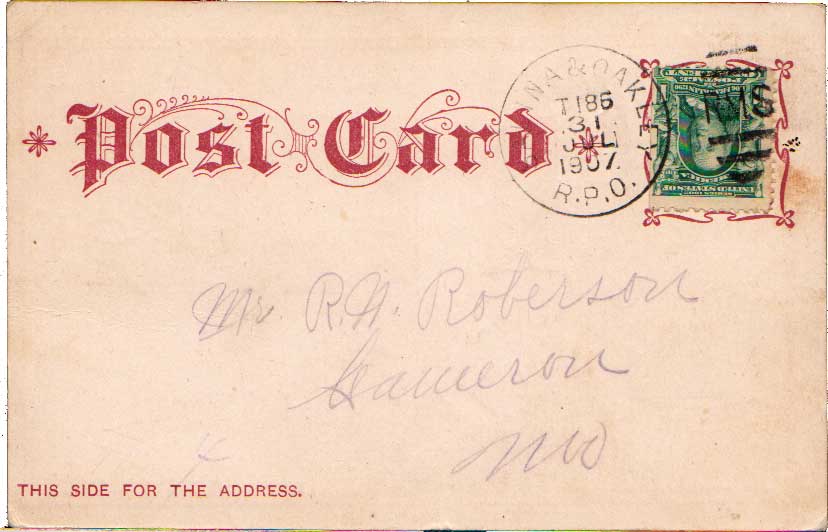 Post Card
NA & OAKLEY
T186
31
JUL
1907
R.P.O.
RMS
UNITED STATES OF
AMERICA
Mr. R. N. Roberson
Cameron
Mo
THIS SIDE FOR THE ADDRESS.